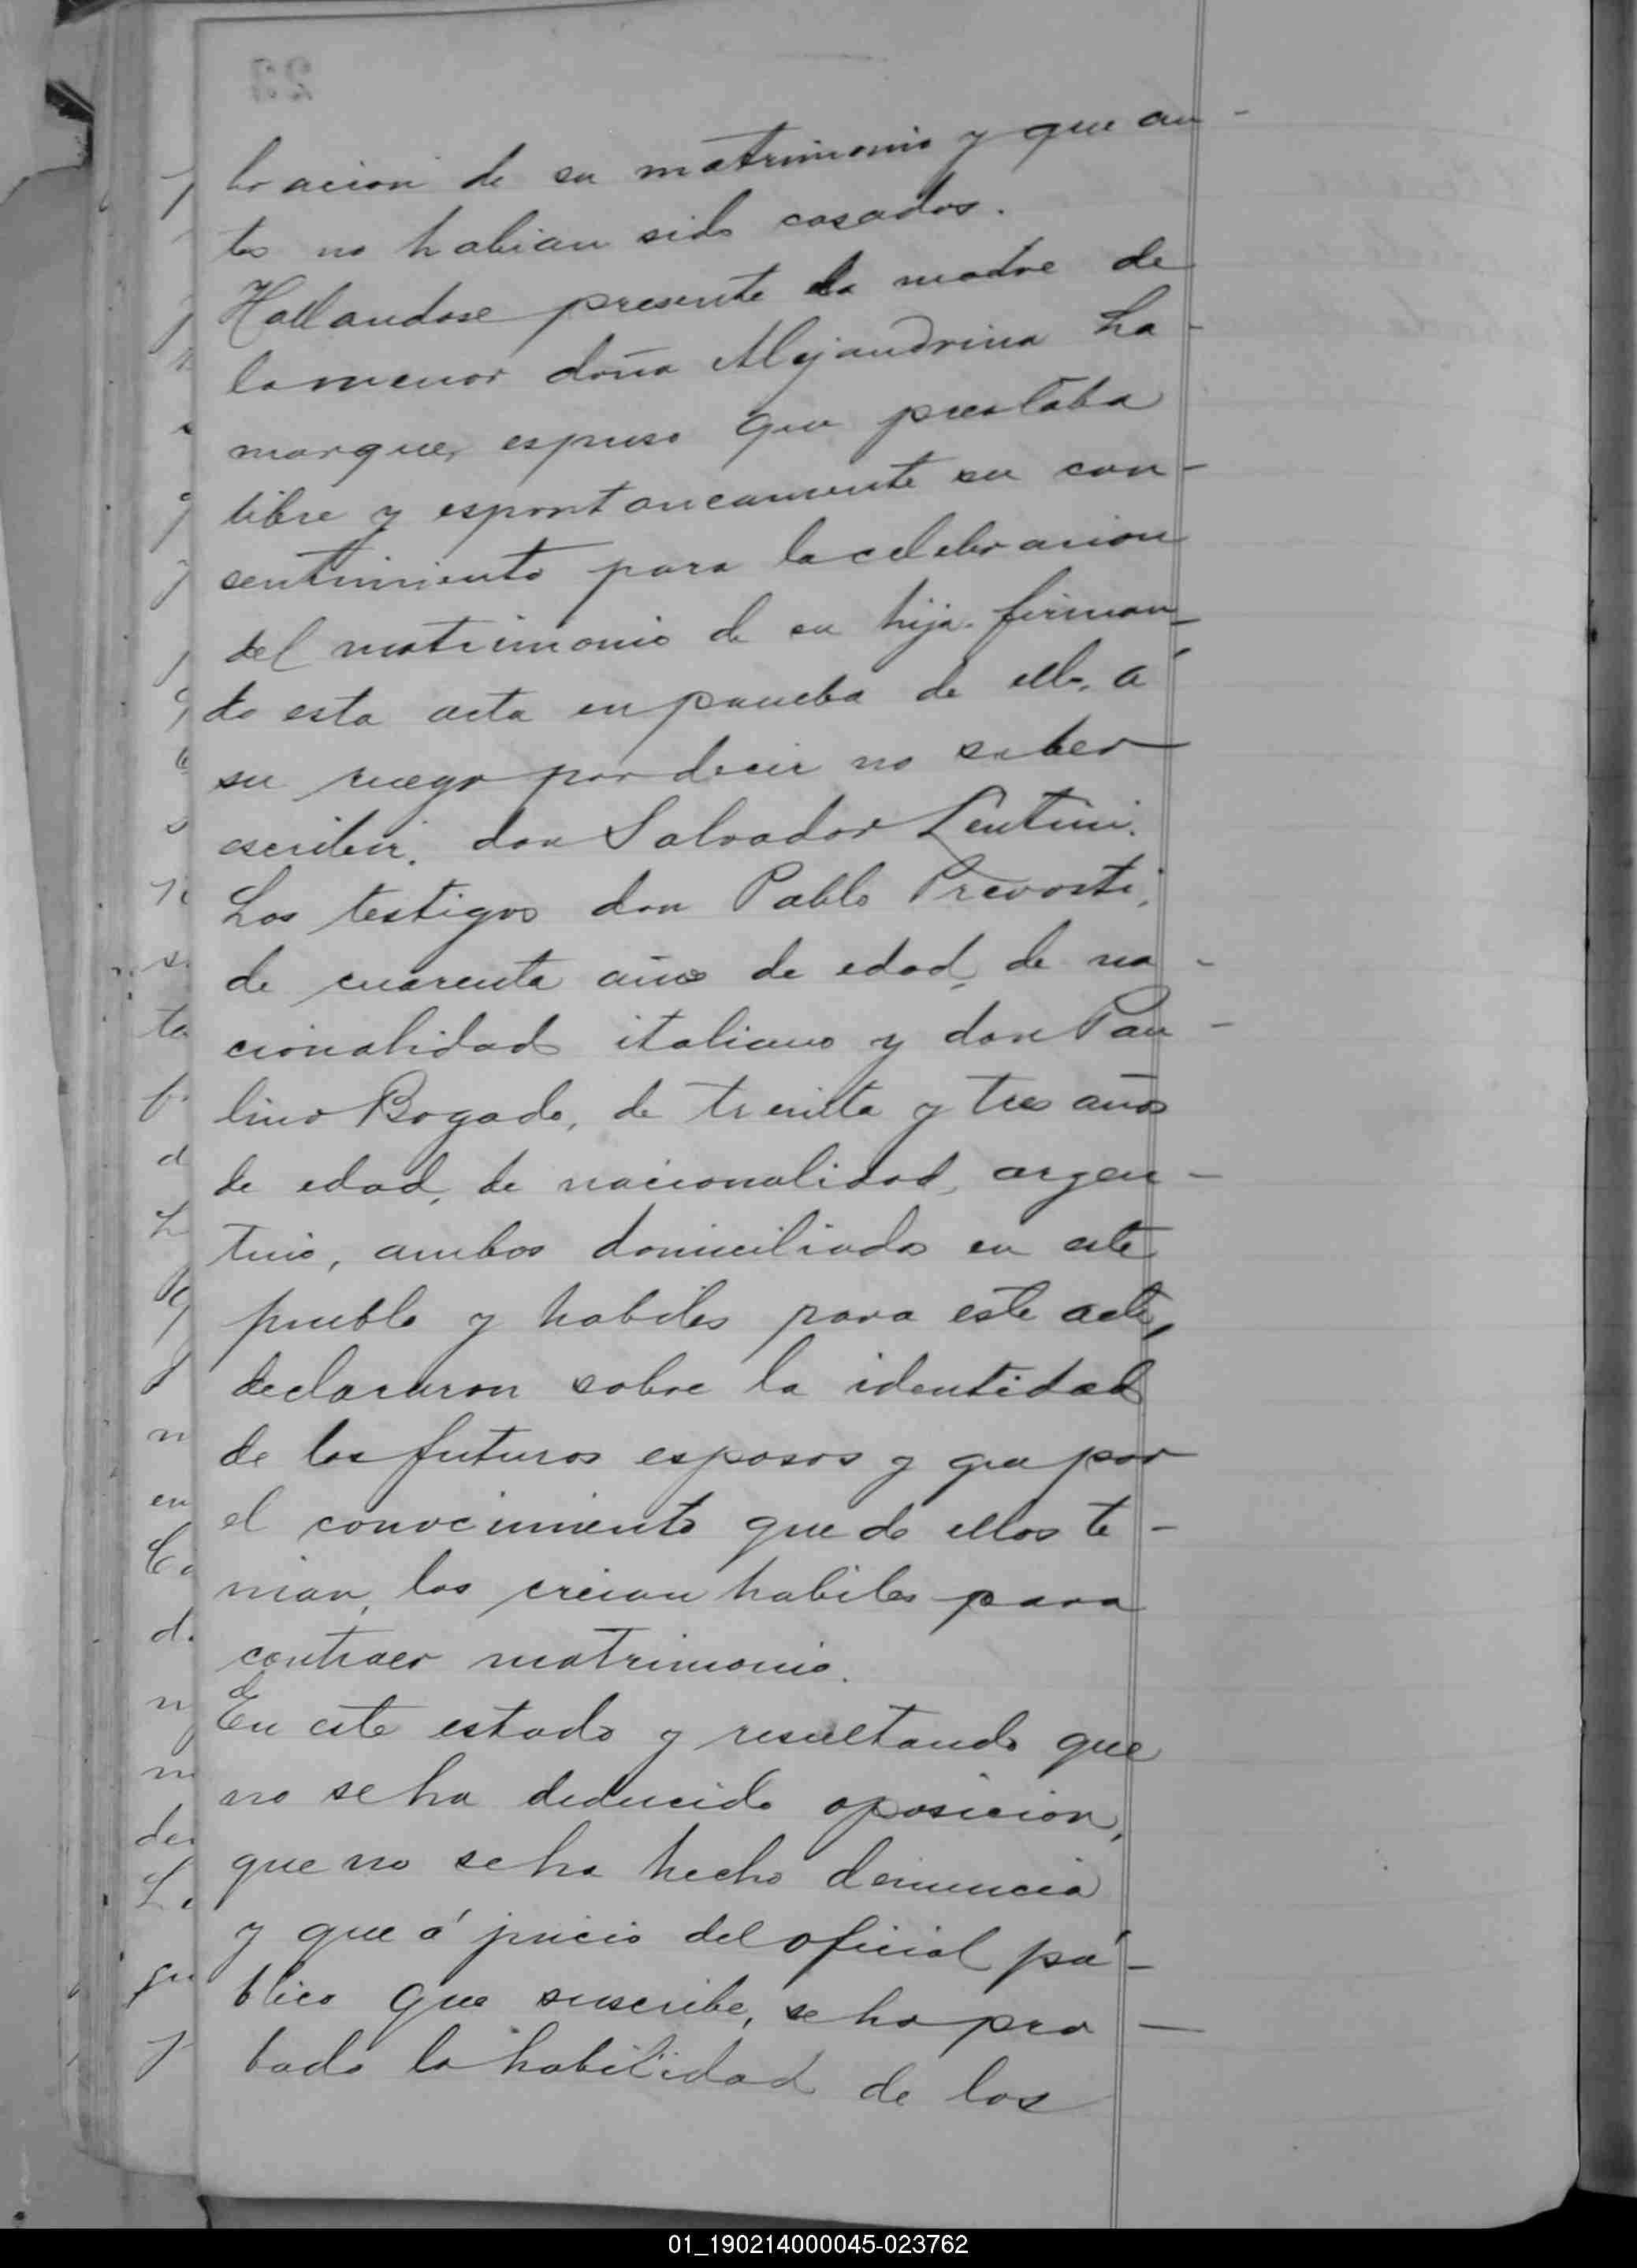 bracion de su matrimonio y que an-
tes no habian sido casados.
Hallandose presente la madre de
la menor doña Alejandrina La-
marque, espuso que prestaba
libre y espontaneamente su con-
sentimiento para la celebracion
del matrimonio de su hija. firman-
do esta acta en prueba de ello, á
su ruego por decir no saber
escribir, don Salvador Lentini.
Los testigos don Pablo Prevosti,
de cuarenta años de edad, de na-
cionalidad italiano y don Pau-
lino Bogado, de treinta y tres años
de edad, de nacionalidad, argen-
tino, ambos domiciliados en este
pueblo y habiles para este acto,
declararon sobre la identidad
de los futuros esposos y que por
el conocimiento que de ellos te-
nian, los creian habiles para
contraer matrimonio.
En este estado y resultando que
no se ha deducido oposicion,
que no se ha hecho denuncia
y que á juicio del oficial pú-
blico que suscribe, se ha pro-
bado la habilidad de los
01_190214000045-023762